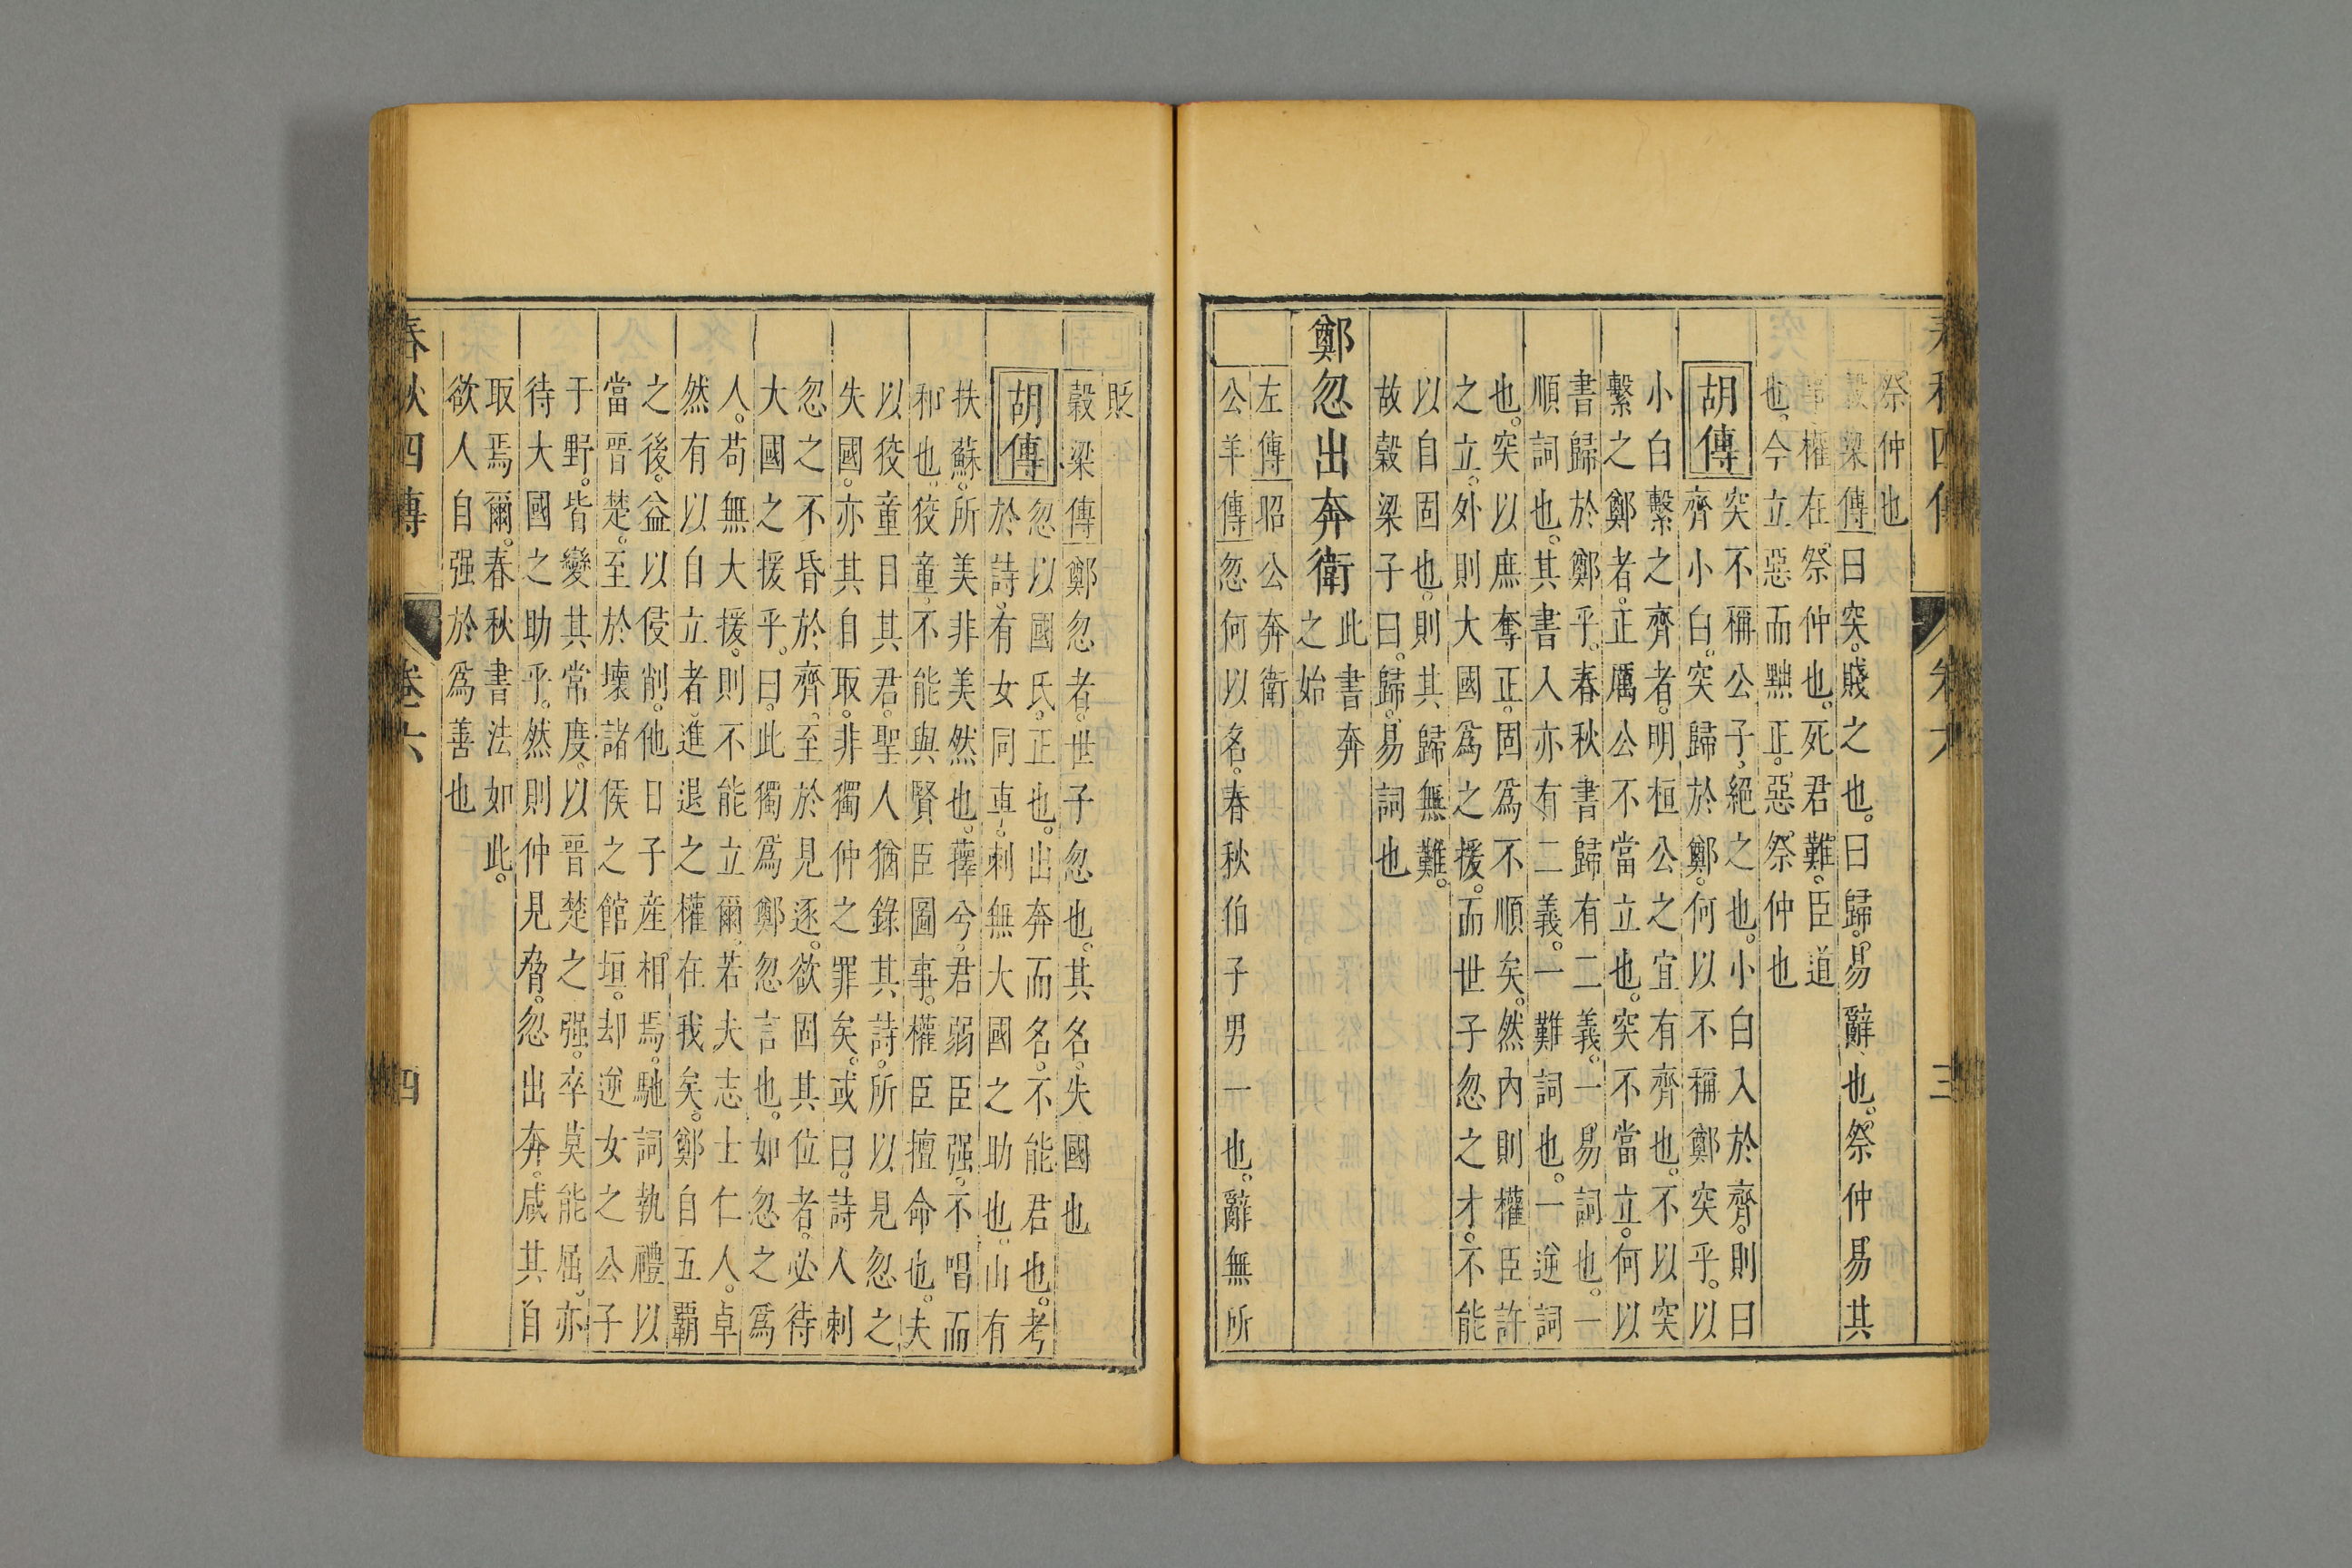 春秋四傳
卷六
三
祭仲也
穀梁傳曰突。賤之也。曰歸。易辭也。祭仲易其
事。權在祭仲也。死君難。臣道
也。今立惡而黜正。惡祭仲也
胡傳
突不稱公子。絕之也。小白入於齊。則曰
齊小白。突歸於鄭。何以不稱鄭突乎。以
小白繫之齊者。明桓公之宜有齊也。不以突
繫之鄭者。正厲公不當立也。突不當立。何以
書歸於鄭乎。春秋書歸有二義。一易詞也。一
順詞也。其書入亦有二義。一難詞也。一逆詞
也。突以庶奪正。固爲不順矣。然內則權臣許
之立。外則大國爲之援。而世子忽之才。不能
以自固也。則其歸無難。
故穀梁子曰。歸。易詞也
鄭忽出奔衛
此書奔
之始
左傳昭公奔衛
公羊傳忽何以名。春秋伯子男一也。辭無所
貶
穀梁傳鄭忽者。世子忽也。其名。失國也
胡傳
忽以國氏。正也。出奔而名。不能君也。考
於詩。有女同車。刺無大國之助也。山有
扶蘇。所美非美然也。蘀兮。君弱臣强。不唱而
和也。狡童。不能與賢臣圖事。權臣擅命也。夫
以狡童目其君。聖人猶錄其詩。所以見忽之
失國。亦其自取。非獨仲之罪矣。或曰。詩人刺
忽之不昏於齊。至於見逐。欲固其位者。必待
大國之援乎。曰。此獨爲鄭忽言也。如忽之爲
人。苟無大援。則不能立爾。若夫志士仁人。卓
然有以自立者。進退之權在我矣。鄭自五霸
之後。益以侵削。他日子產相焉。馳詞執禮。以
當晉楚。至於壞諸侯之館垣。却逆女之公子
于野。皆變其常度。以晉楚之强。卒莫能屈。亦
待大國之助乎。然則仲見脅。忽出奔。咸其自
取焉爾。春秋書法如此。
欲人自强於爲善也
春秋四傳
卷六
四